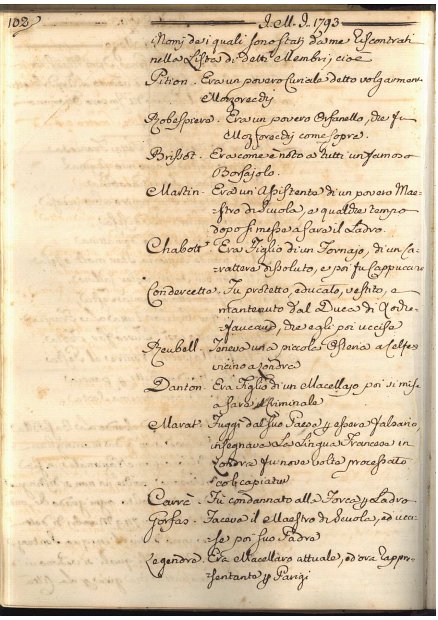 102
I. M. I. 1793
Nomi de i quali sono stati da me riscontrati
nella Lista di detti Membri, cioè
Pition. Era un povero Curiale detto volgarmen.
Mozzorecchj
Robespiere. Era un povero Orfanello, che fu
Mozzorecchj come sopra.
Brissot. Era come è noto a tutti un famoso
Borsajolo.
Martin. Era un Assistente di un povero Mae-
stro di Scuola, e qualche tempo
dopo si messe a fare il Ladro.
Chabott. Era Figlio di un Fornajo, di un Ca-
rattere dissoluto, e poi fu Cappuccino
Condorcette. Fu protetto, educato, vestito, e
mantenuto dal Duca di
che egli poi uccise
Reubell. Teneva una piccola Osteria a
vicino a Londra
Danton. Era Figlio di un Macellajo poi si mise
a fare il Criminale
Marat. Fuggì dal suo Paese per essere falsario,
insegnava la Lingua Francese in
Londra fu nove volte processato
Carrè. Fù condannato alla Forca per Ladro
Gorsas. Faceva il Maestro di Scuola, ed ucci-
se poi suo Padre
Legendre. Era Macellaro attuale, ed ora rappre-
sentante per Parigi